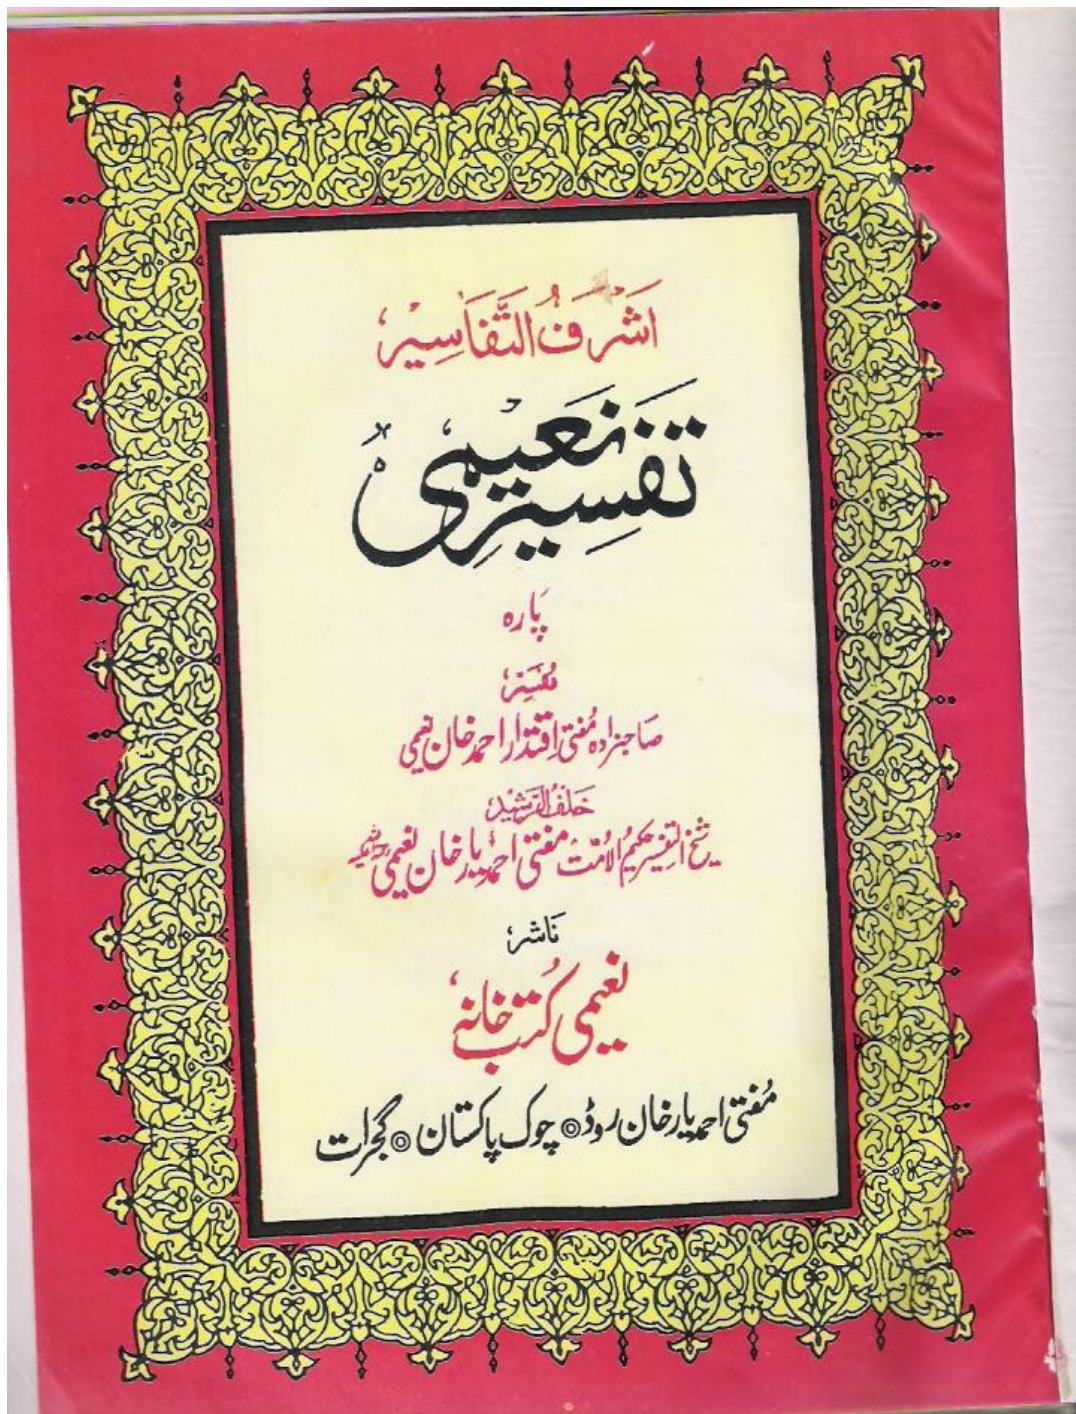 اَشْرَفُ التَّفَاسِیْر
تَفْسِیْرِ نَعِیْمِی
پَارہ
مُفَسِّر
صاحبزادہ مُفتی اِقتدار احمد خان نعیمی
خَلفُ الرَّشِیْد
شیخ التفسیر حکیمُ الاُمّت مفتی احمد یار خان نعیمی رحمۃ اللہ علیہ
نَاشر
نعیمی کُتب خانہ
مُفتی احمد یار خان روڈ ◎ چوک پاکستان ◎ گجرات